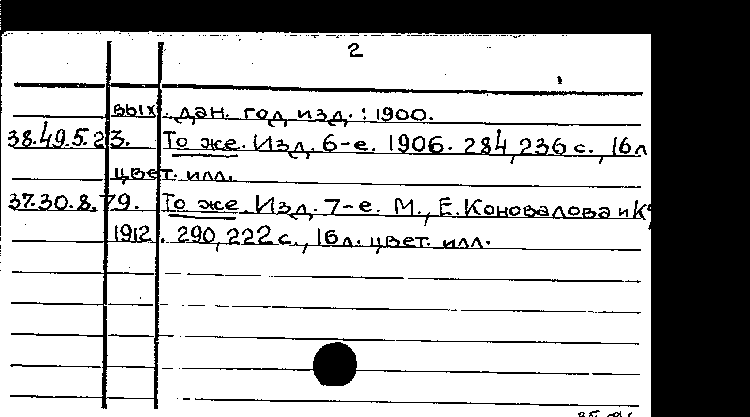 2
вых. дан. год изд.: 1900.
38.49.5.23. То же. Изд. 6-е. 1906. 284, 236 с., 16л
цвет. илл.
37.30.8.79. То же. Изд. 7-е. М., Е. Коновалова и Кº,
1912. 290, 222 с., 16л. цвет. илл.